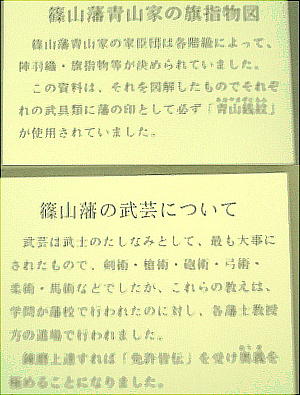 篠山藩青山家の旗指物図
篠山藩青山家の家臣団は各階級によって、
陣羽織・旗指物等が決められていました。
この資料は、それを図解したものでそれぞ
れの武具類に藩の印として必ず「青山銭紋」
が使用されていました。
篠山藩の武芸について
武芸は武士のたしなみとして、最も大事に
されたもので、剣術・槍術・砲術・弓術・
柔術・馬術などでしたか、これらの教えは、
学問が藩校で行われたのに対し、各藩士教授
方の道場で行われました。
錬磨上達すれば「免許皆伝」を受け奥義を
極めることになりました。